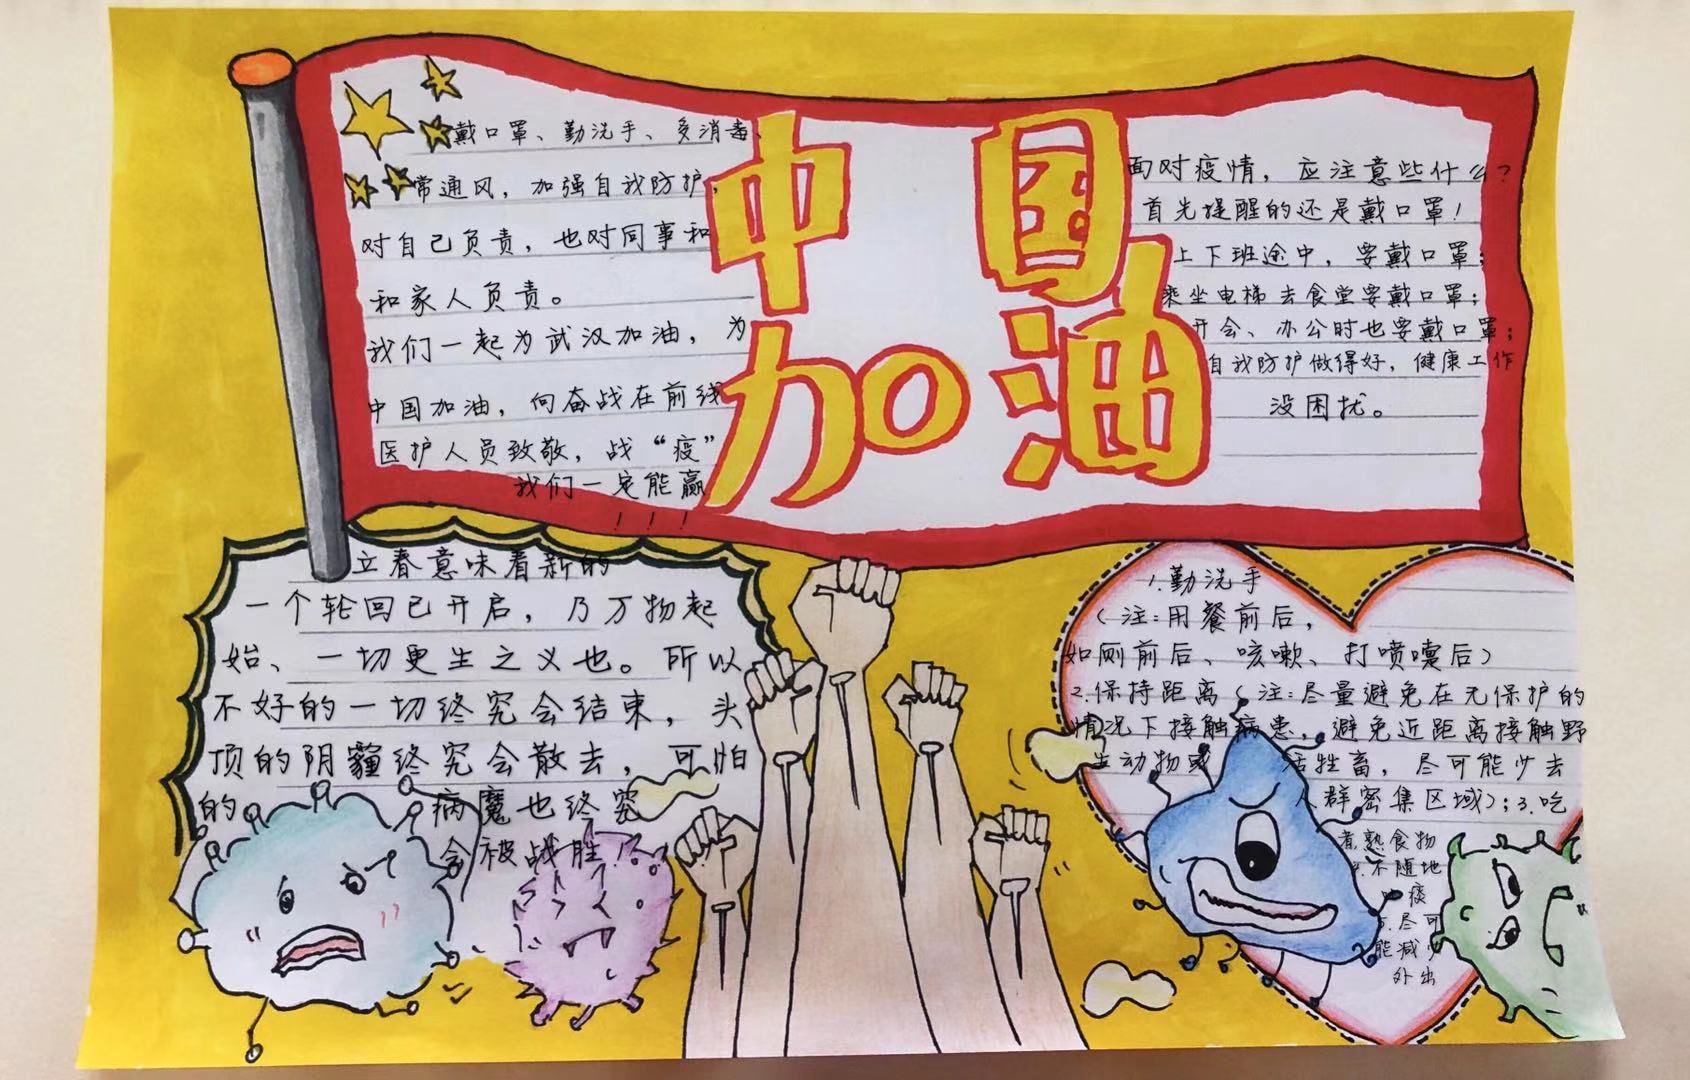 戴口罩、勤洗手、多消毒、
常通风，加强自我防护，
对自己负责，也对同事和
和家人负责。
我们一起为武汉加油，为
中国加油，向奋战在前线
医护人员致敬，战“疫”
我们一定能赢
！！！
中国
加油
面对疫情，应注意些什么？
首先提醒的还是戴口罩！
上下班途中，要戴口罩；
乘坐电梯去食堂要戴口罩；
开会、办公时也要戴口罩；
自我防护做得好，健康工作
没困扰。
立春意味着新的
一个轮回已开启，乃万物起
始、一切更生之义也。所以
不好的一切终究会结束，头
顶的阴霾终究会散去，可怕
的 病魔也终究
会被战胜！
1.勤洗手
（注：用餐前后，
如厕前后、咳嗽、打喷嚏后）
2.保持距离（注：尽量避免在无保护的
情况下接触病患，避免近距离接触野
生动物或 活牲畜，尽可能少去
人群密集区域）；3.吃
煮熟食物
不随地
吐痰
5.尽可
能减少
外出